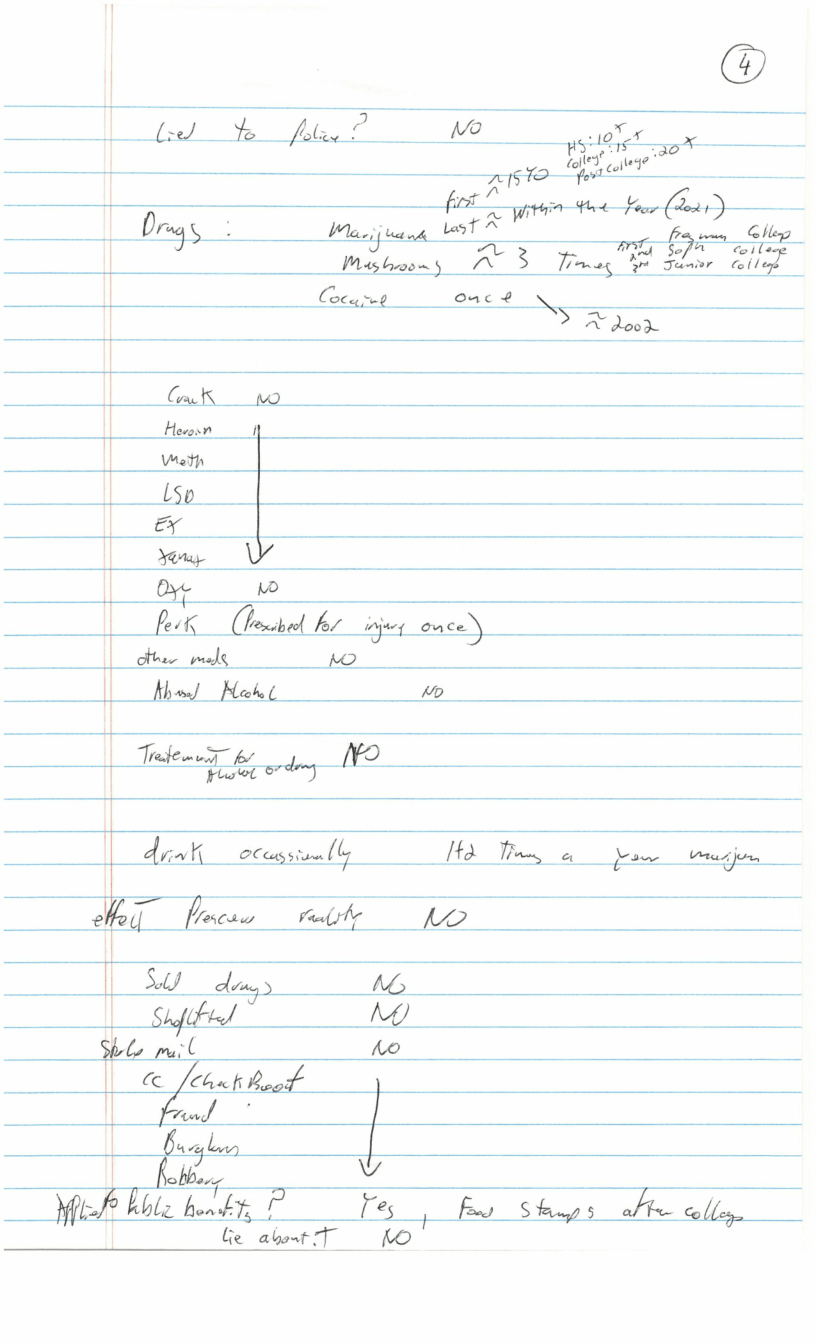 4
Lied to Police? NO
HS: 10x
College: 15x
Post College: 20x
First ~ 15 YO
Last ~ Within the Year (2021)
Drugs: Marijuana
Mushrooms ~ 3 Times
First Freshman College
2nd Soph College
3rd Junior College
Cocaine once
≈ 2002
Crack NO
Heroin "
Meth
LSD
EX
Xanax
Oxy NO
Perk (Prescribed for injury once)
other meds NO
Abused Alcohol NO
Treatement for Alcohol or drug NO
drink occassionally 1td Times a year marijun
effect reality NO
Sold drugs NO
Shoplifted NO
Stole mail NO
CC / Check
Fraud
Burglary
Robbery
Applied to Public benefits? Yes, Food Stamps after college
lie about it NO